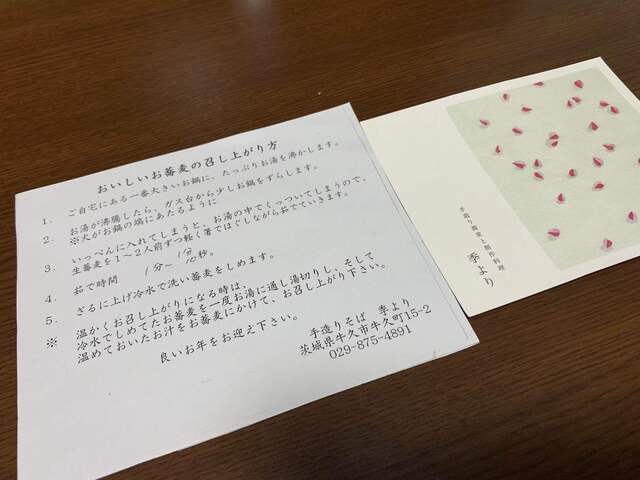 おいしいお蕎麦の召し上がり方
1. ご自宅にある一番大きいお鍋に、たっぷりお湯を沸かします。
2. お湯が沸騰したら、ガス台から少しお鍋をずらします。
※火がお鍋の端にあたるように
3. いっぺんに入れてしまうと、お湯の中でくっついてしまうので、
生蕎麦を1〜2人前ずつ軽く箸でほぐしながら茹でていきます。
4. 茹で時間 1分〜1分10秒。
5. ざるに上げ冷水で洗い蕎麦をしめます。
※ 温かくお召し上がりになる時は、
冷水でしめてお蕎麦を一度お湯に通し湯切りし、そして
温めておいたお汁をお蕎麦にかけて、お召し上がり下さい。
良いお年をお迎え下さい。
手造りそば 季より
茨城県牛久市牛久町15-2
029-875-4891
手造り蕎麦と創作料理
季より